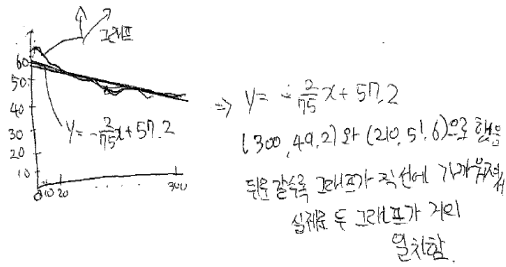 그래프
60
50
40
30
20
10
y = -2/75x + 57.2
0 10 20 ... 300
⇒ y = -2/75x + 57.2
(300, 49.2) 와 (210, 51.6)으로 했음
뒤로 갈수록 그래프가 직선에 가까워져서
실제로 두 그래프가 거의
일치함.